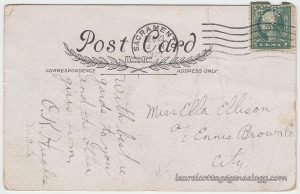 Post Card
SACRAMENTO
CORRESPONDENCE
ADDRESS ONLY
With best re
gards to you
and the other
girls from,
Miss Ella Ellison
c/o Ennis Brown Co
City
laurelcottagegenealogy.com